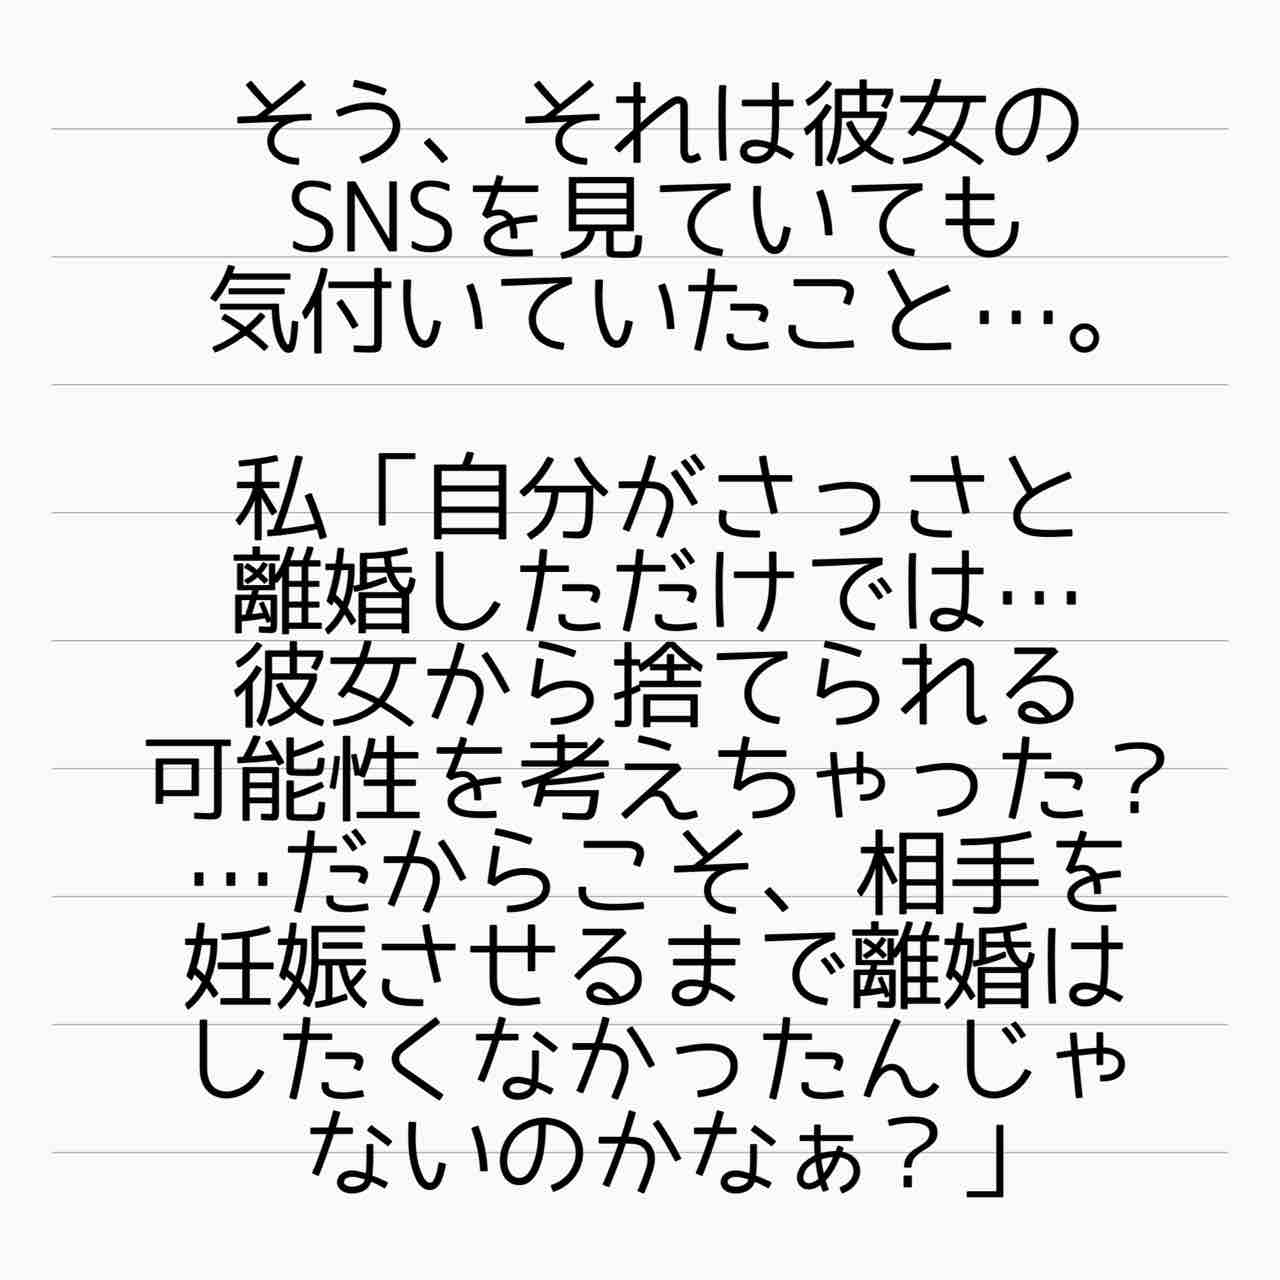 そう、それは彼女の
SNSを見ていても
気付いていたこと…。
私「自分がさっさと
離婚しただけでは…
彼女から捨てられる
可能性を考えちゃった？
…だからこそ、相手を
妊娠させるまで離婚は
したくなかったんじゃ
ないのかなぁ？」